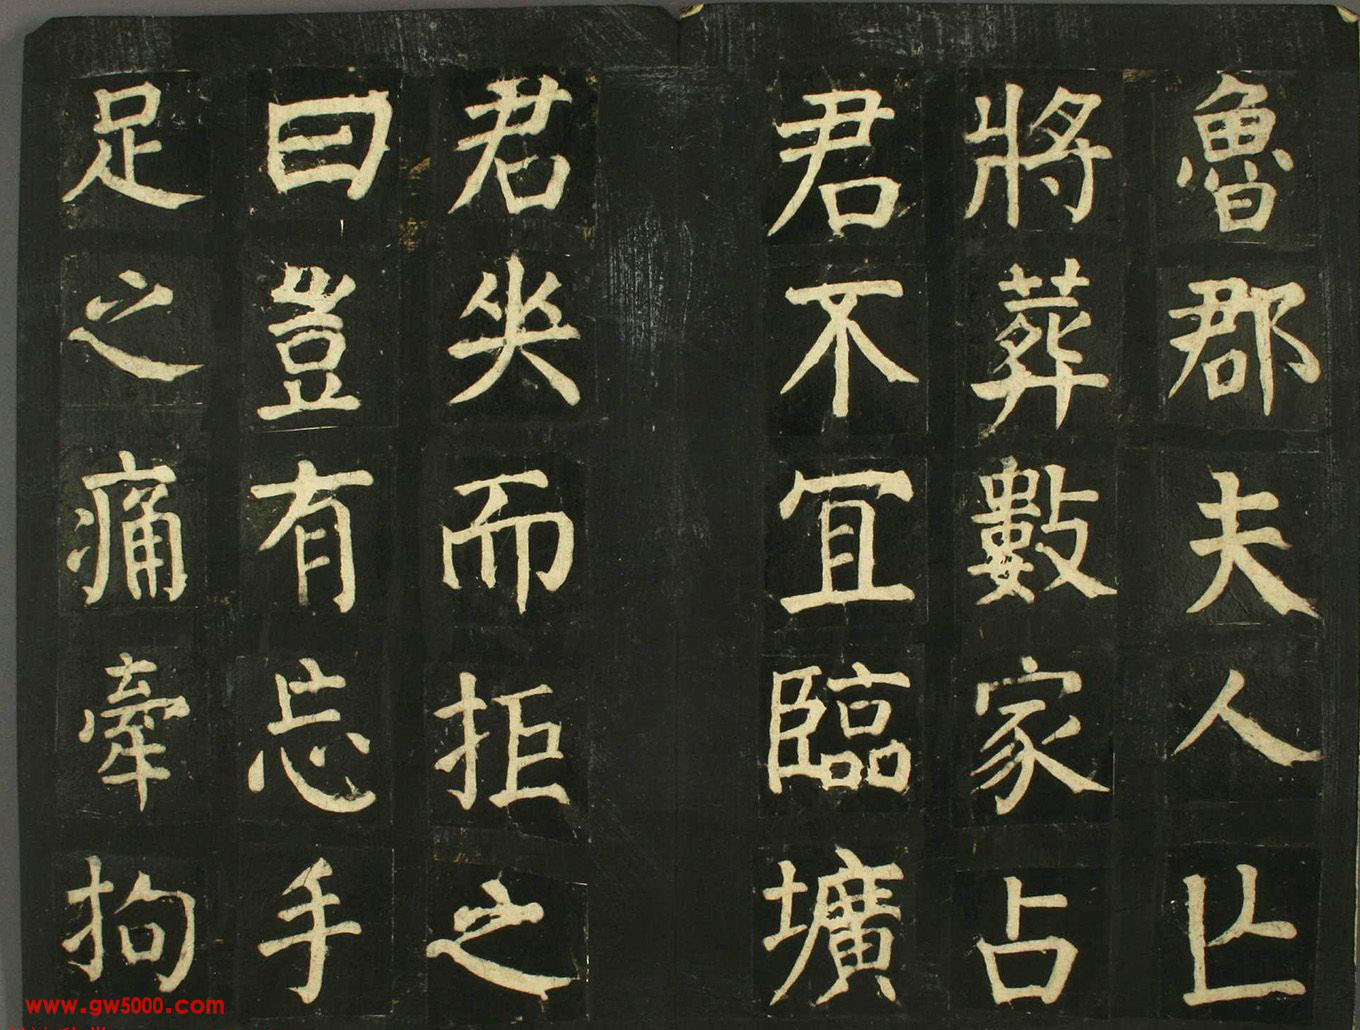 魯郡夫人亡
將葬數家占
君不宜臨壙
君坐而拒之
曰豈有忘手
足之痛牽拘
www.gw5000.com